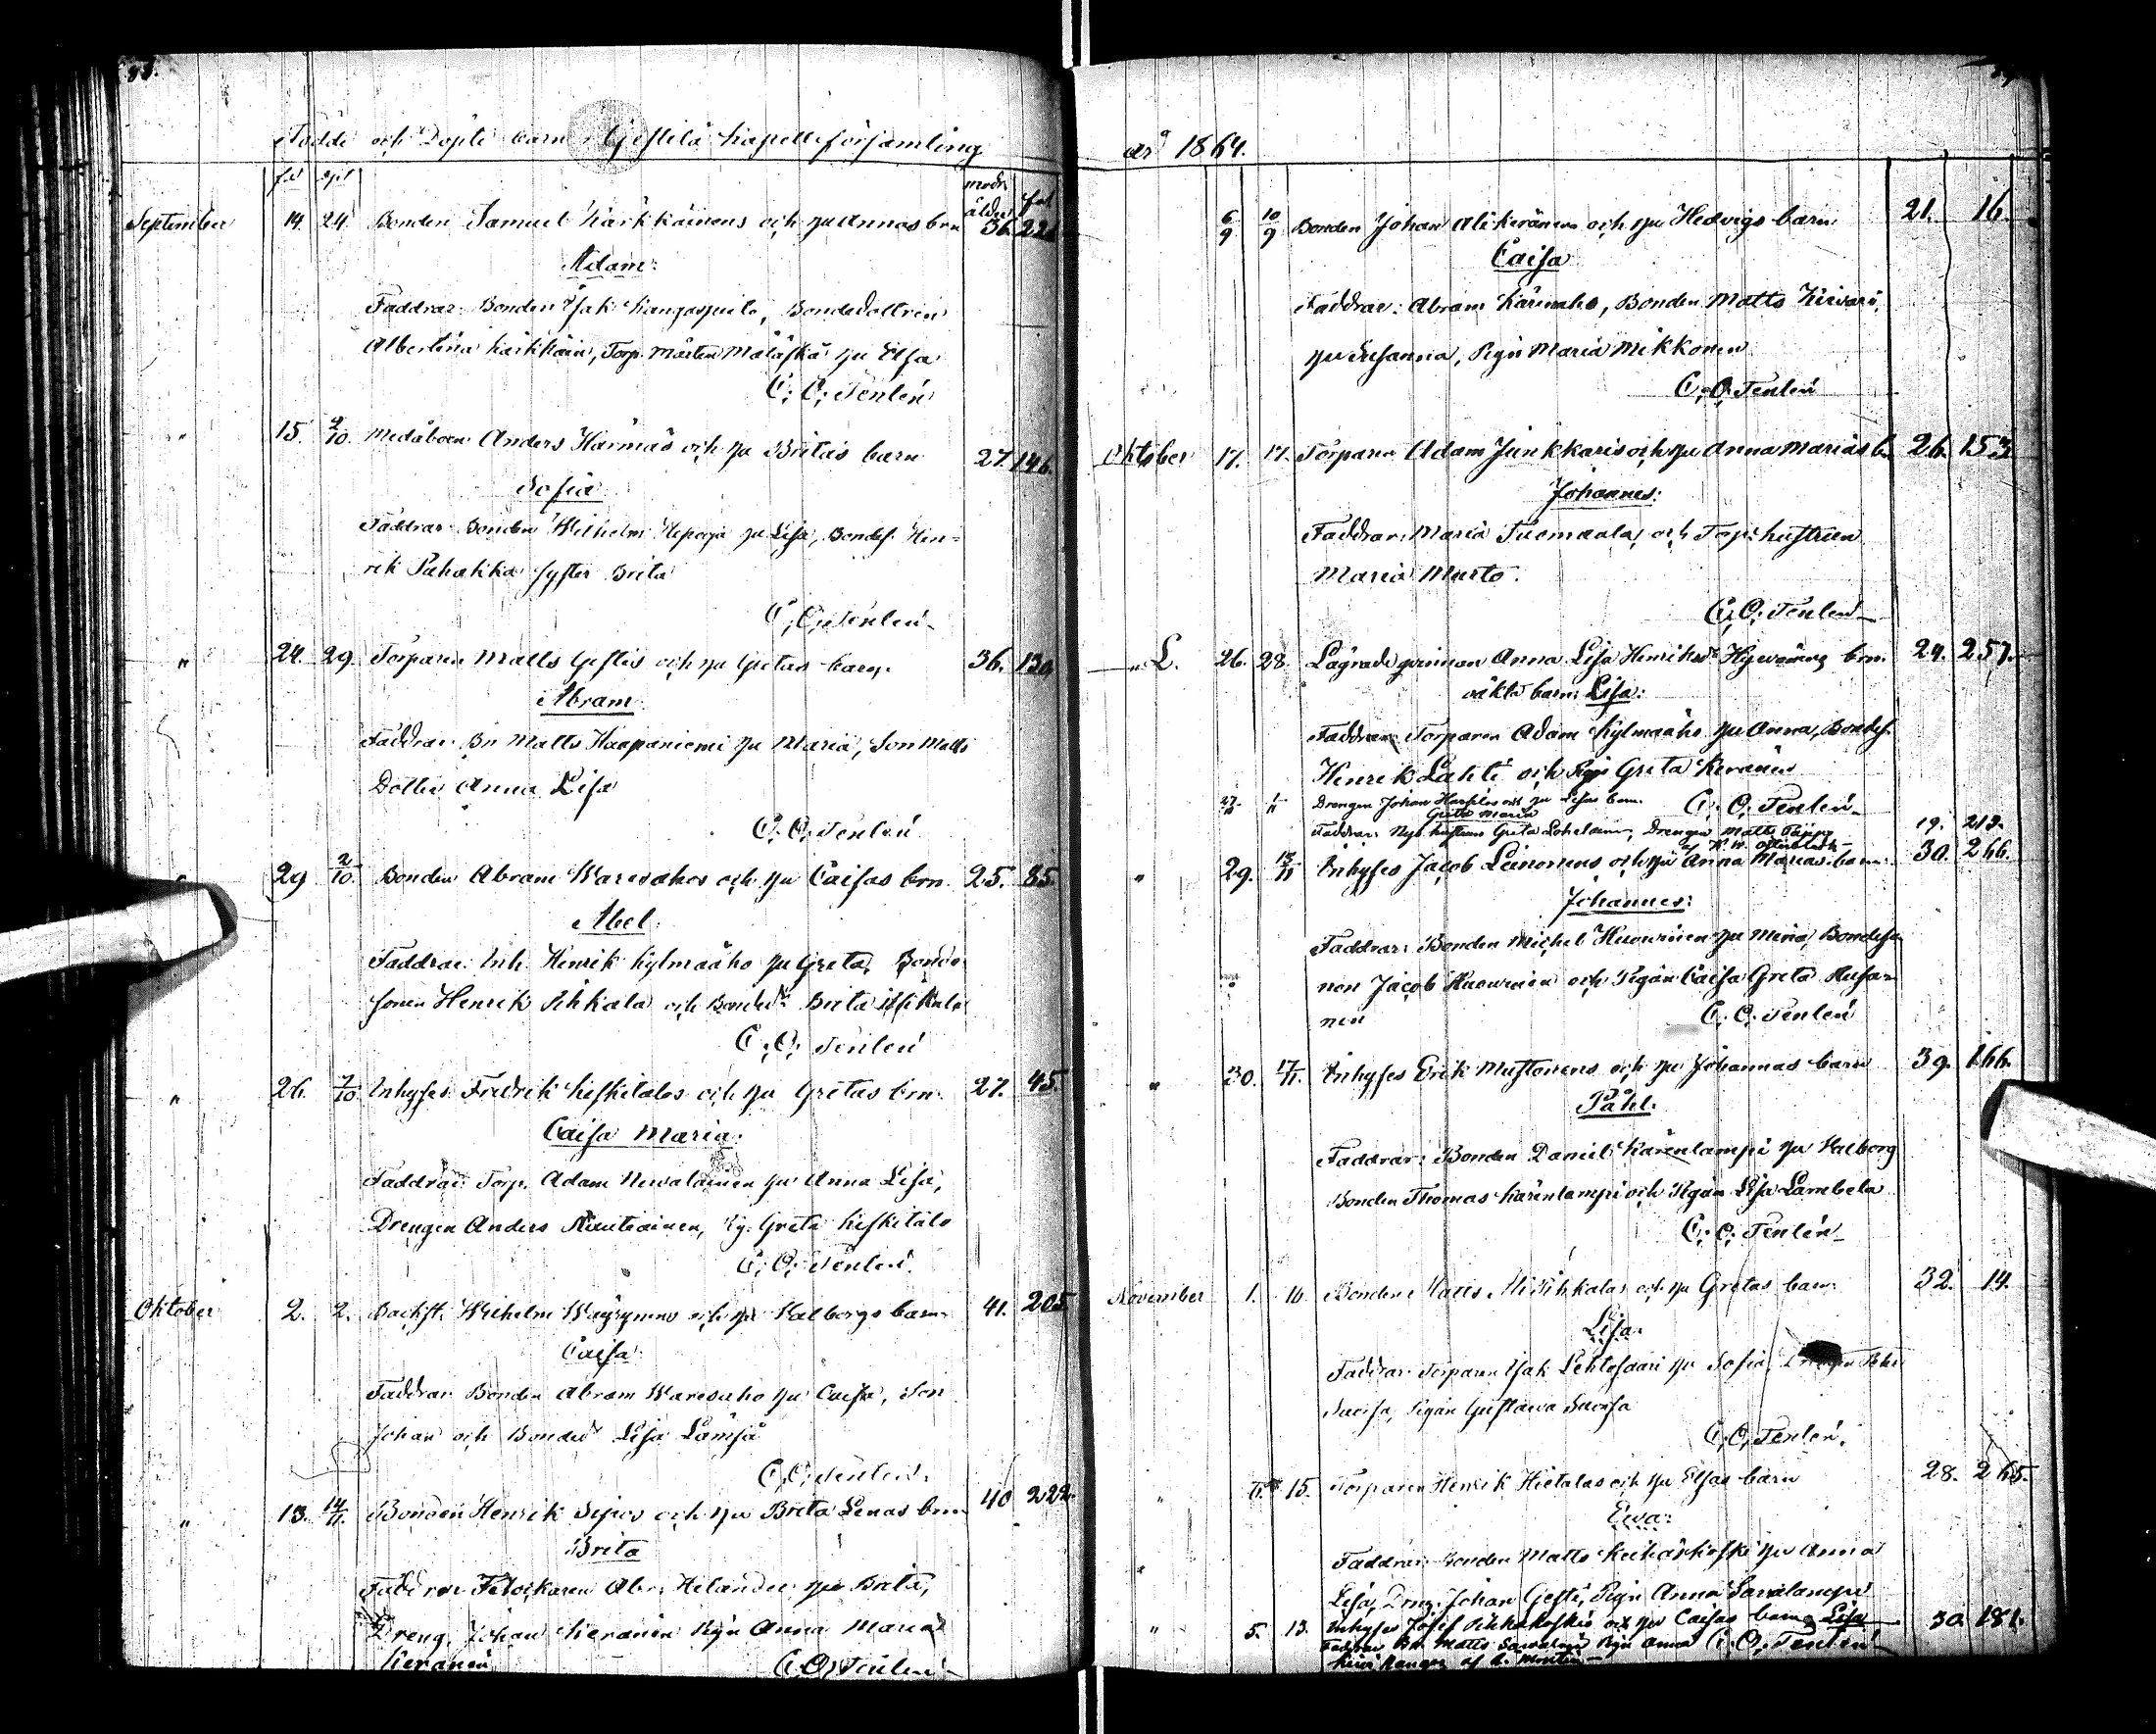 Födde och Döpte barn i Gestilä kapellsförsamling
föd döpt modr ålder fol
September 14. 24 Bonden Samuel Kärkkäinens och hu Annas brn 36. 221
Adam:
Faddrar: Bonden Isak Kangaspuito, Bondedottren
Albertina Kärkkäin, Torp. Mårten Mäläskä hu Elsa
C. O. Tenlén
" 15. 2/10. Medåboen Anders Härmäs och hu Britas barn 27. 146.
Sofia
Faddrar: Bonden Wilhelm Hepooja hu Lisa, Bondes. Hen=
rik Pahakka syster Brita
C. O. Tenlén
" 24. 29. Torparen Matts Gestis och hu Gretas barn. 36. 130
Abram
Faddrar: Bn Matts Haapaniemi hu Maria, Son Matts
Dotter Anna Lisa
C. O. Tenlén
29 2/10. Bonden Abram Waresahos och hu Caisas brn 25. 85.
Abel.
Faddrar: Inh. Henrik Kylmäaho hu Greta, Bonde
sonen Henrik Pihkala och Bonded. Brita
C. O. Tenlén
" 26. 7/10 Inhyses Fredrik Keskitalos och hu Gretas brn. 27. 45
Caisa Maria:
Faddrar: Torp. Adam Newalainen hu Anna Lisa,
Drengen Anders Nautiainen, Pig. Greta Keskitalo
C. O. Tenlén.
Oktober 2. 2. Backst. Wilhelm Wäyrynens och hu Walborgs barn 41. 205
Caisa
Faddrar: Bonden Abram Waresaho hu Caisa, Son
Johan och Bonded. Lisa Lämsä
C. O. Tenlén.
" 13. 14/11. Bonden Henrik Sipos och hu Brita Lenas brn 40 222.
Brita
Faddrar: Abr. Helander hu Brita,
Dreng. Johan Keränen Pign Anna Maria
Keränen C. O. Tenlén
år 1864.
6/9 10/9 Bonden Johan Alikeränens och hu Hedvigs barn 21. 16.
Caisa
Faddrar: Abram Kärenaho, Bonden Matts Kiiwari,
hu Susanna, Pign Maria Mikkonen
C. O. Tenlén
Oktober 17. 17. Torparen Adam Junkkaris och hu Anna Marias b. 26. 153
Johannes:
Faddrar: Maria Tuomaala, och Torp. hustrun
Maria Murto.
C. O. Tenlén
" L. 26. 28. Lägrade qvinnan Anna Lisa Henriksd. brn. 24. 257.
oäkta barn: Lisa:
Faddrar: Torparen Adam Kylmäaho hu Anna, Bondes.
Henrik Lahti och Pign Greta Keränen
C. O. Tenlén
27/10 1/11 Drengen Johan och hu Lisas barn.
Greta Maria
Faddrar: hustrun Greta Drengen Matts 19. 213.
" 29. 13/11 Inhyses Jacob Leinonens och hu Anna Marias barn 30. 266.
Johannes:
Faddrar: Bonden Michel Huowinen hu Maria, Bondeso
nen Jacob Huowinen och Pigan Caisa Greta Husa=
nen C. O. Tenlén
" 30. 17/11. Inhyses Erik Mustonens och hu Johannas barn 39. 166.
Pahl.
Faddrar: Bonden Daniel Kärenlampi hu Walborg
Bonden Thomas Kärenlampi och Pigan Lisa Lambela
C. O. Tenlén
November 1. 10. Bonden Matts Pihkalas och hu Gretas barn 32. 14.
Lisa:
Faddrar: Torparen Isak Lehtosaari hu Sofia, Drengen
Pigan Gustawa
C. O. Tenlén.
" 15. Torparen Henrik Hietalas och hu Elsas barn 28. 265.
Ewa:
Faddrar: Bonden Matts hu Anna
Lisa, Dreng. Johan Gesti, Pign Anna Sawalampi
" 5. 13. Inhyses Josef Pihkakoskis och hu Caisas barn Lisa 30. 181.
Faddrar: Bn Matts Pign Anna C. O. Tenlén